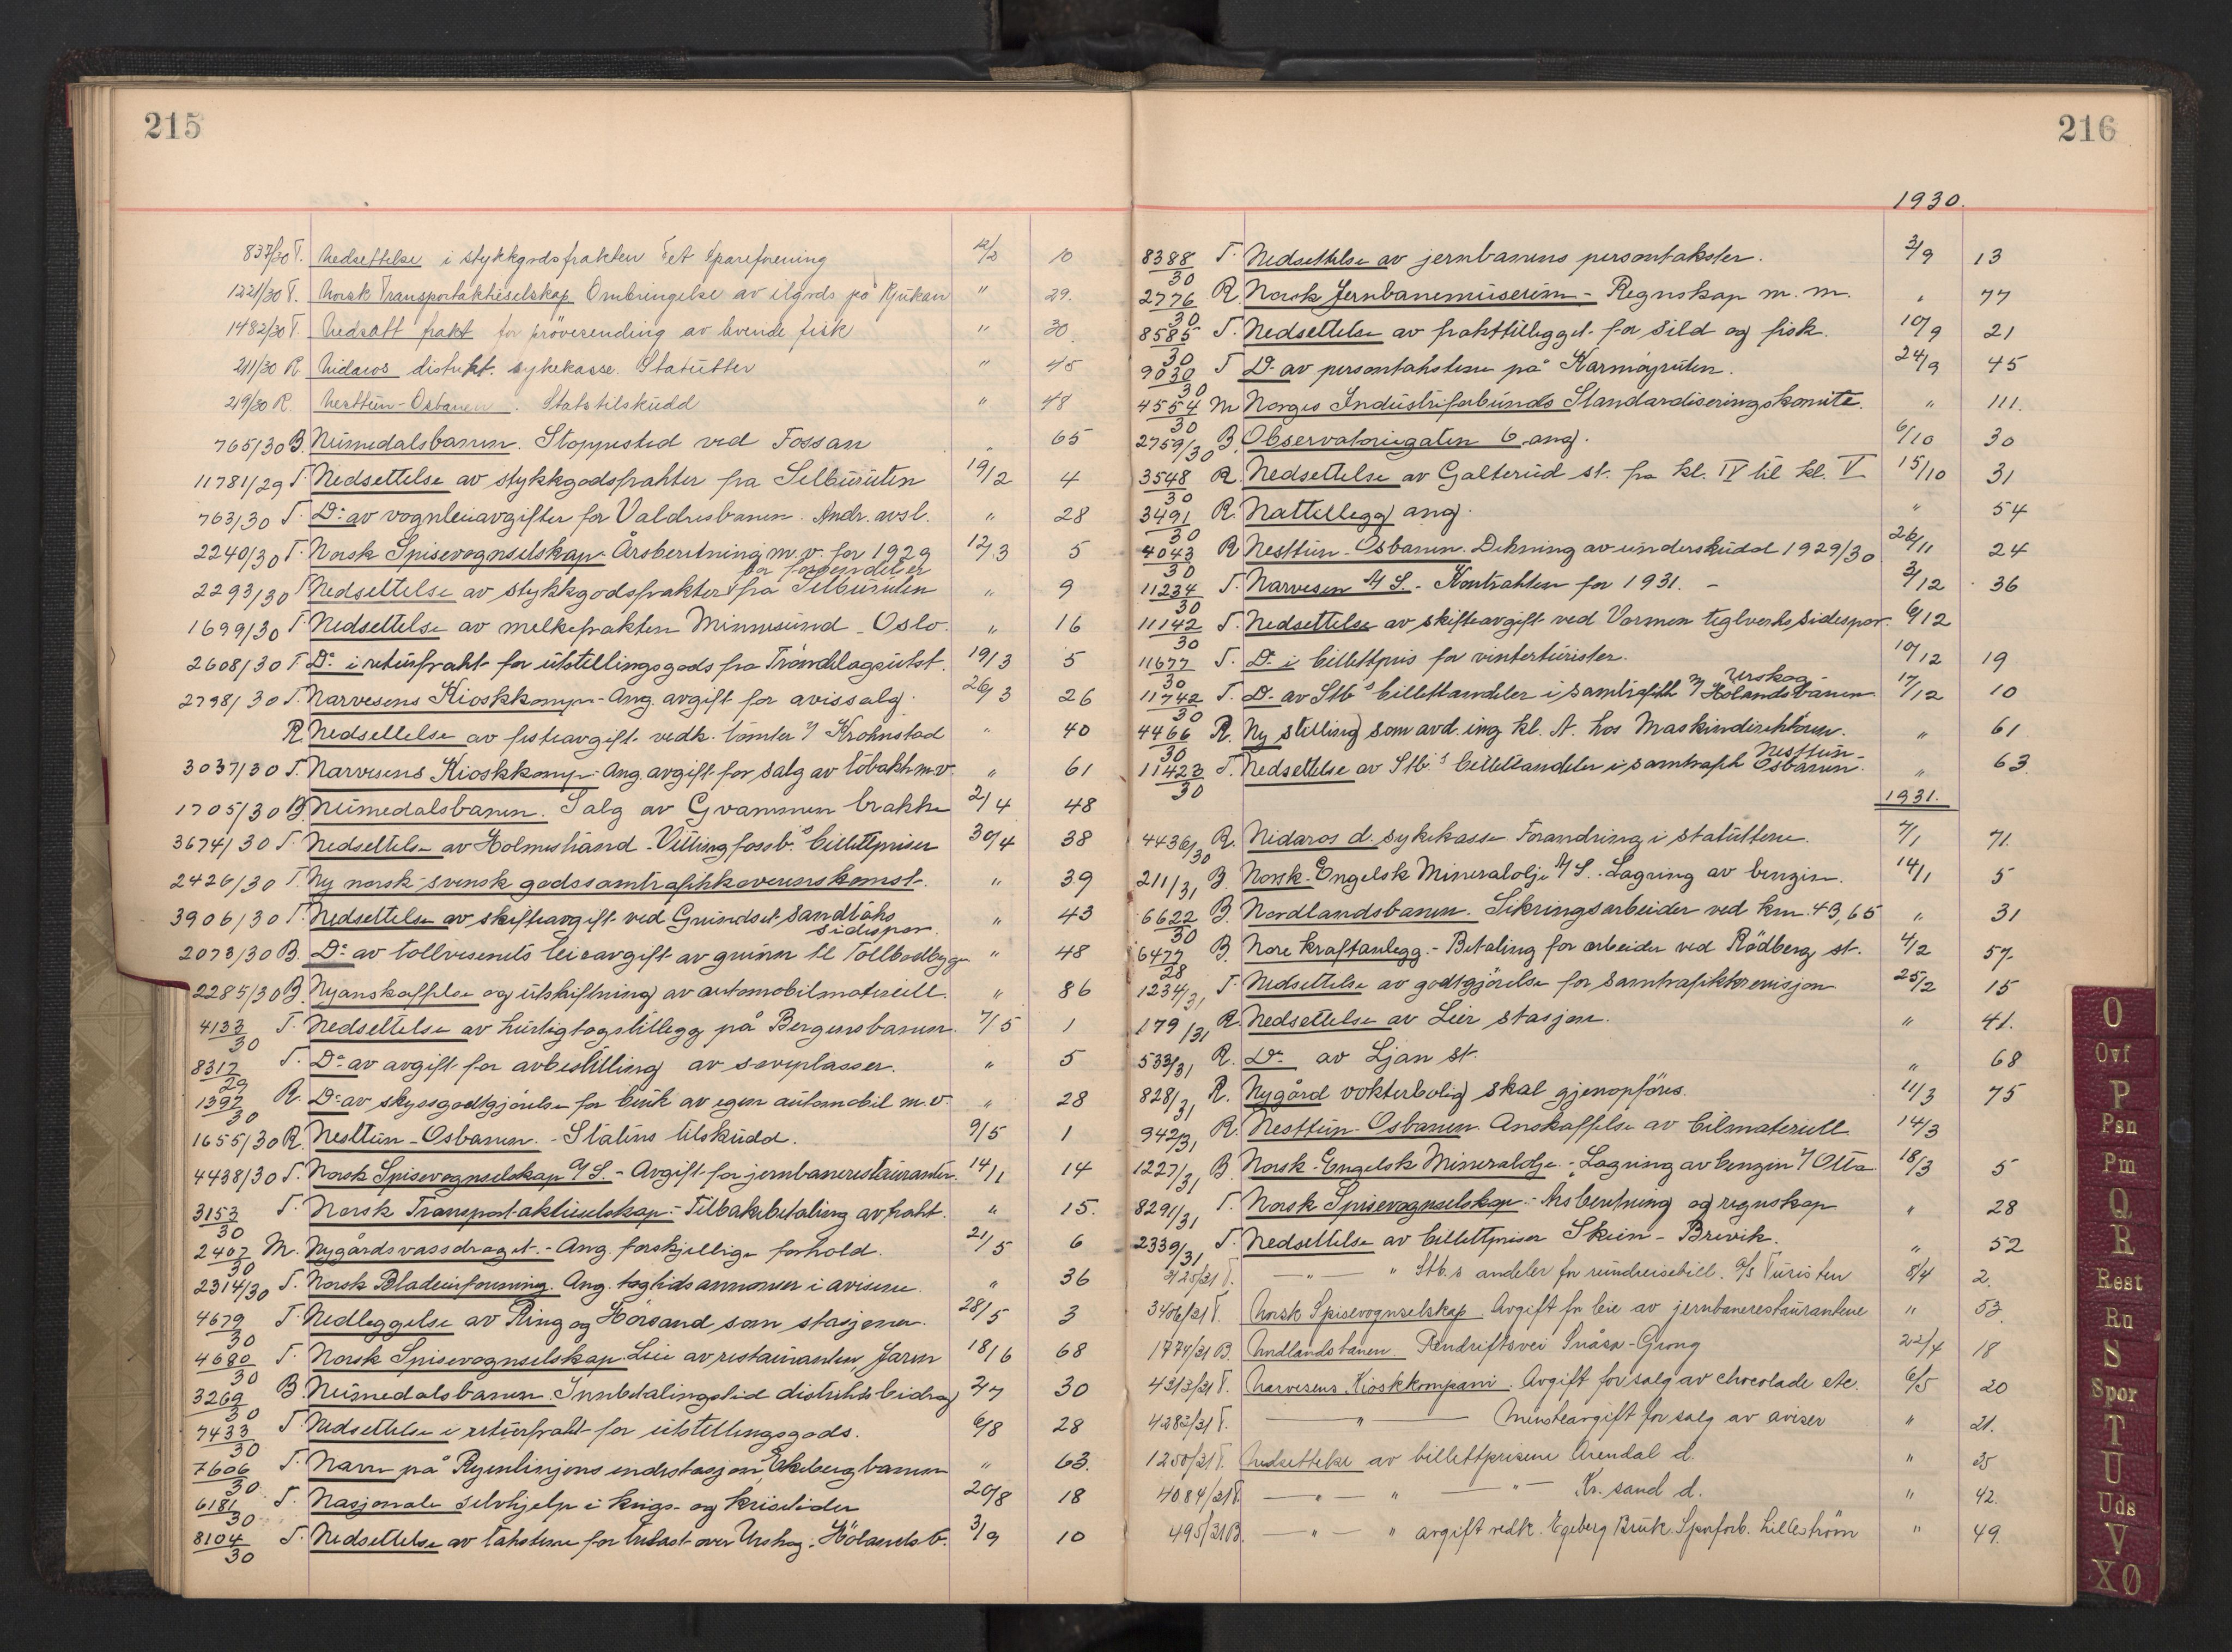 215
837/30 T. Nedsettelse i stykkgodsfrakten Fet Spareforening 12/2 10
1221/30 T. Norsk Transportaktieselskap Ombringelse av ilgods på Rjukan " 29.
1482/30 T. Nedsatt frakt for prövesending av levende fisk " 30.
211/30 R. Nidaros distrikt. sykekasse. Statutter " 45
219/30 R. Nesttun-Osbanen. Statstilskudd " 48
765/30 B. Numedalsbanen. Stoppested ved Fossan " 65
11781/29 T. Nedsettelse av stykkgodsfrakter fra Selburuten 19/2 4
763/30 T. Do av vognleieavgifter for Valdresbanen. Andr. avsl. " 28
2240/30 T. Norsk Spisevognselskap. Årsberetning m.v. for 1929 12/3 5
2293/30 T. Nedsettelse av stykkgodsfrakter for forsendelser fra Selburuten " 9
1699/30 T. Nedsettelse av melkefrakten Minnesund - Oslo. " 16
2608/30 T. Do i returfrakt for utstillingsgods fra Tröndelagsutst. 19/3 5
2798/30 T. Narvesens Kioskkomp. - Ang. avgift for avissalg. 26/3 26
R. Nedsettelse av festeavgift vedk. tomter i/ Krohnstad " 40
3037/30 T. Narvesens Kioskkomp. - Ang. avgift for salg av tobakk m.v. " 61
1705/30 B. Numedalsbanen. Salg av Gvammen brakke 2/4 48
3674/30 T. Nedsettelse av Holmestrand - Vittingfossb.s billettpriser 30/4 38
2426/30 T. Ny norsk-svensk godssamtrafikkoverenskomst. " 39
3906/30 T. Nedsettelse av skifteavgift ved Grundset Sandtaks sidespor. " 43
2073/30 B. Do av tollvesenets leieavgift av grunn til Tollbodbygn. " 48
2285/30 B. Nyanskaffelse og utskiftning av automobilmateriell. " 86
4133/30 T. Nedsettelse av hurtigtogstillegg på Bergensbanen. 7/5 1
8317/29 T. Do av avgift for avbestilling av soveplasser. " 5
1397/30 R. Do av skyssgodtgjörelse for bruk av egen automobil m.v. " 28
1655/30 R. Nesttun-Osbanen. - Statens tilskudd. 9/5 1
4438/30 T. Norsk Spisevognselskap A/S. - Avgift for jernbanerestauranter. 14/1 14
3153/30 T. Norsk Transportaktieselskap. - Tilbakebetaling av frakt. " 15.
2407/30 M. Nygårdsvassdraget. - Ang. forskjellige forhold. 21/5 6
2314/30 T. Norsk Bladeierforening. Ang. togtidsannonser i avisene. " 36
4679/30 T. Nedleggelse av Ring og Hörsand som stasjoner. 28/5 3
4680/30 T. Norsk Spisevognselskap. Leie av restauranten, Jaren 18/6 68
3269/30 B. Numedalsbanen. Innbetalingstid distriktsbidrag 2/7 30
7433/30 T. Nedsettelse i returfrakt for utstillingsgods. 6/8 28
7606/30 T. Navn på Ryenlinjens endestasjon, Ekebergbanen " 63.
6181/30 T. Nasjonale selvhjelp i krigs- og krisetider 20/8 18
8104/30 T. Nedsettelse av takstene for trelast over Urskog-Hölandsb. 3/9 10
216
1930.
8388/30 T. Nedsettelse av jernbanens persontakster. 3/9 13
2776/30 R. Norsk Jernbanemuseum - Regnskap m.m. " 77
8585/30 T. Nedsettelse av frakttillegget for sild og fisk. 10/9 21
9030/30 T Do av persontakstene på Karmöyruten. 24/9 45
4554/30 M Norges Industriforbunds Standardiseringskomite. " 111.
2759/30 B. Observatoriegaten 6 ang. 6/10 30
3548/30 R. Nedsettelse av Galterud st. fra kl. IV til kl. V 15/10 31
3491/30 R. Nattillegg ang. " 54
4043/30 R Nesttun-Osbanen. Dekning av underskudd 1929/30 26/11 24
11234/30 T. Narvesen A/S. - Kontrakten for 1931. - 3/12 36
11142/30 T. Nedsettelse av skifteavgift ved Vormen teglverks sidespor. 6/12
11677/30 T. Do i billettpris for vinterturister. 10/12 19
11742/30 T. Do av Stb.s billettandeler i samtrafikk m/ Urskog-Hölandsbanen 17/12 10
4466/30 R. Ny stilling som avd. ing. kl. A. hos Maskindirektören. " 61
11423/30 T. Nedsettelse av Stb.s billettandeler i samtrafik Nesttun-Osbanen. " 63.
1931.
4436/30 R. Nidaros d. sykekasse. Forandring i statuttene. 7/1 71.
211/31 B. Norsk-Engelsk Mineralolje A/S. - Lagring av benzin. 14/1 5
6622/30 B. Nordlandsbanen. Sikringsarbeider ved km. 43,65 " 31
6477/28 B. Nore kraftanlegg. - Betaling for arbeider ved Rödberg st. 4/2 57.
1234/31 T. Nedsettelse av godtgjörelse for samtrafikkrevisjon 25/2 15
179/31 R. Nedsettelse av Lier stasjon. " 41.
533/31 R. Do av Ljan st. " 68
828/31 R. Nygård vokterbolig skal gjenopföres. 11/3 75
942/31 R. Nesttun-Osbanen. Anskaffelse av bilmateriell 14/3
1227/31 B. Norsk-Engelsk Mineralolje. - Lagring av benzin i/ Otta 18/3 5
8291/31 T. Norsk Spisevognselskap. - Årsberetning og regnskap " 28
2339/31 T. Nedsettelse av billettpriser Skien - Brevik. " 52
3125/31 T. — " — " Stb.s andeler for rundreisebill. A/S Turisten 8/4 2.
3406/31 T. Norsk Spisevognselskap. Avgift for leie av jernbanerestaurantene " 53.
1774/31 B. Nordlandsbanen. Rendriftsvei Snåsa-Grong 22/4 18
4313/31 T. Narvesens Kioskkompani. Avgift for salg av chocolade etc. 6/5 20
4283/31 T. — " — Minsteavgift for salg av aviser " 21.
1250/31 T. Nedsettelse av billettprisene Arendal d. " 35
4084/31 T. — " — " — " — Kr.sand d. " 42.
495/31 B. — " — " avgift vedk. Egeberg Bruk. Sporforb. Lilleström " 49.
O
Ovf
P
Psn
Pm
Q
R
Rest
Rn
S
Spor
T
U
Uds
V
XØ